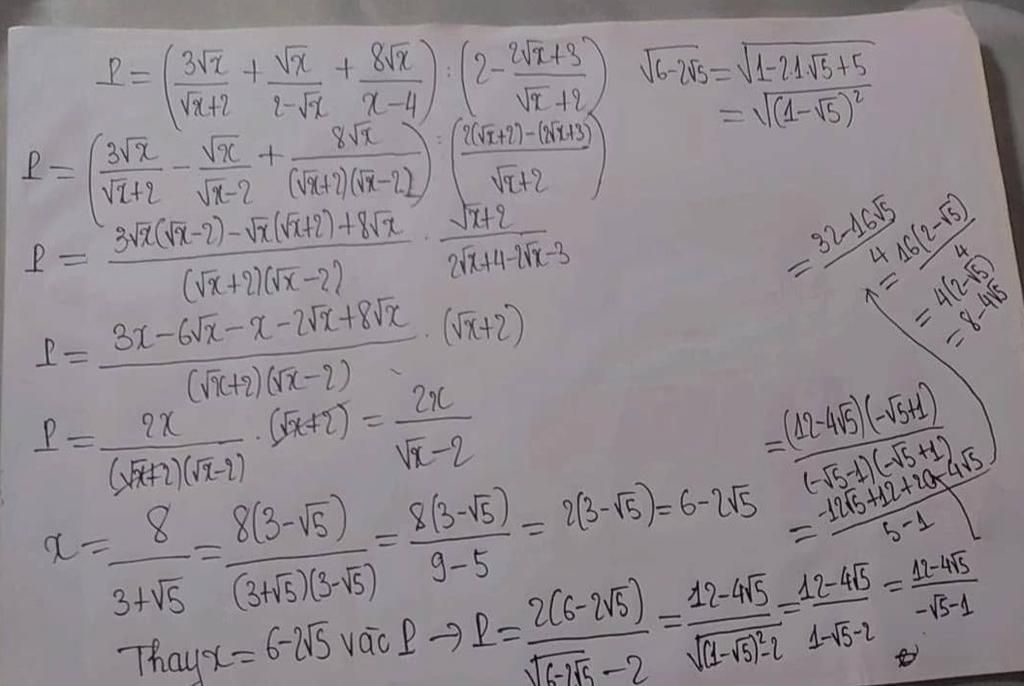 P = (3√x/(√x+2) + √x/(2-√x) + 8√x/(x-4)) : (2 - (2√x+3)/(√x+2))
√(6-2√5) = √(1-2.1.√5+5)
= √((1-√5)²)
P = (3√x/(√x+2) - √x/(√x-2) + 8√x/((√x+2)(√x-2))) : ((2(√x+2)-(2√x+3))/(√x+2))
P = (3√x(√x-2)-√x(√x+2)+8√x)/((√x+2)(√x-2)) . (√x+2)/(2√x+4-2√x-3)
P = (3x-6√x-x-2√x+8√x)/((√x+2)(√x-2)) . (√x+2)
P = 2x/((√x+2)(√x-2)) . (√x+2) = 2x/(√x-2)
x = 8/(3+√5) = 8(3-√5)/((3+√5)(3-√5)) = 8(3-√5)/(9-5) = 2(3-√5) = 6-2√5
Thay x = 6-2√5 vào P → P = 2(6-2√5)/(√(6-2√5)-2) = (12-4√5)/(√((1-√5)²)-2) = (12-4√5)/(1-√5-2) = (12-4√5)/(-√5-1)
= (12-4√5)(-√5+1)/((-√5-1)(-√5+1))
= (-12√5+12+20-4√5)/(5-1)
= (32-16√5)/4
= 16(2-√5)/4
= 4(2-√5)
= 8-4√5